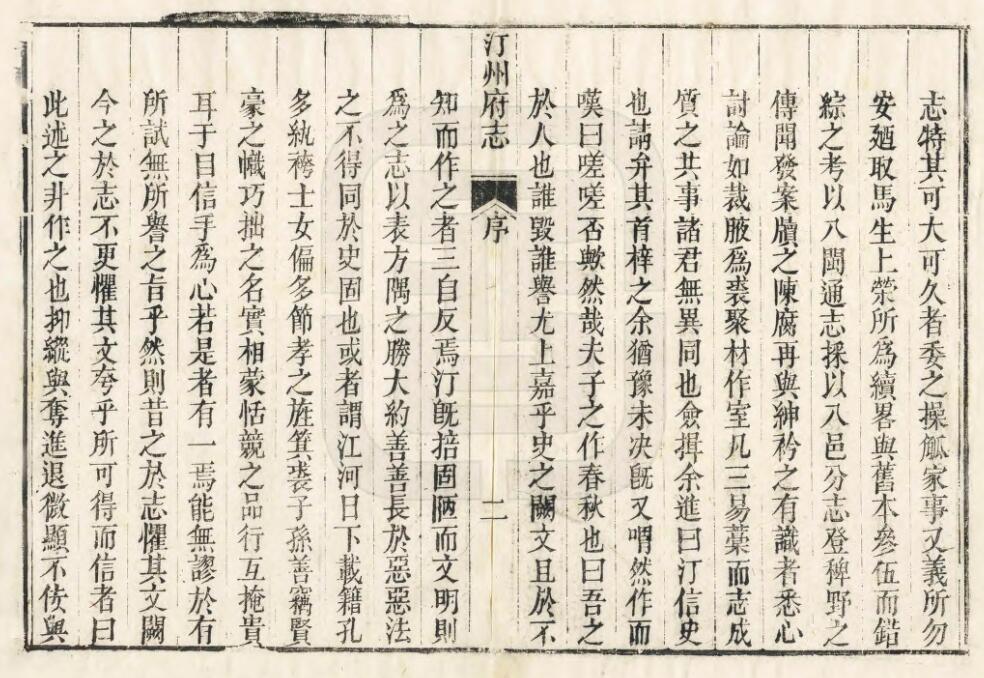 志特其可大可久者委之操觚家事又義所勿
安廼取馬生上榮所為續畧與舊本參伍而錯
綜之考以八閩通志採以八邑分志登稗野之
傳聞發案牘之陳腐再與紳衿之有識者悉心
討論如裁腋為裘聚材作室凡三易藁而志成
質之共事諸君無異同也僉揖余進曰汀信史
也請弁其首梓之余猶豫未决旣又喟然作而
嘆曰嗟嗟否歟然哉夫子之作春秋也曰吾之
於人也誰毀誰譽尤上嘉乎史之闕文且於不
汀州府志
序
二
知而作之者三自反焉汀旣掊固陋而文明則
為之志以表方隅之勝大約善善長於惡惡法
之不得同於史固也或者謂江河日下載籍孔
多紈袴士女偏多節孝之旌箕裘子孫善竊賢
豪之幟巧拙之名實相蒙恬競之品行互掩貴
耳于目信手為心若是者有一焉能無謬於有
所試無所譽之旨乎然則昔之於志懼其文闕
今之於志不更懼其文夸乎所可得而信者曰
此述之非作之也抑縱與奪進退微顯不傡與